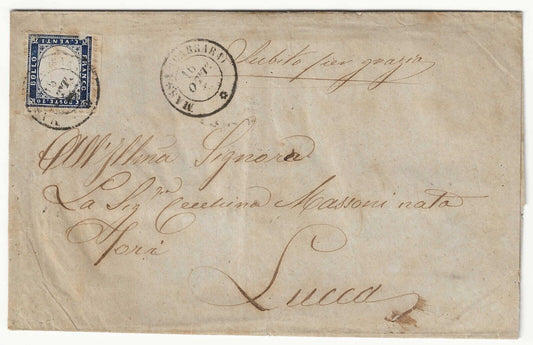 FRANCO
BOLLO
C. POSTE. 20
C. VENTI
MASSA (CARRARA)
16
OTT.
Subito per grazia
All'Illma Signora
La Sigra Cecchina Massoni nata
Lucca